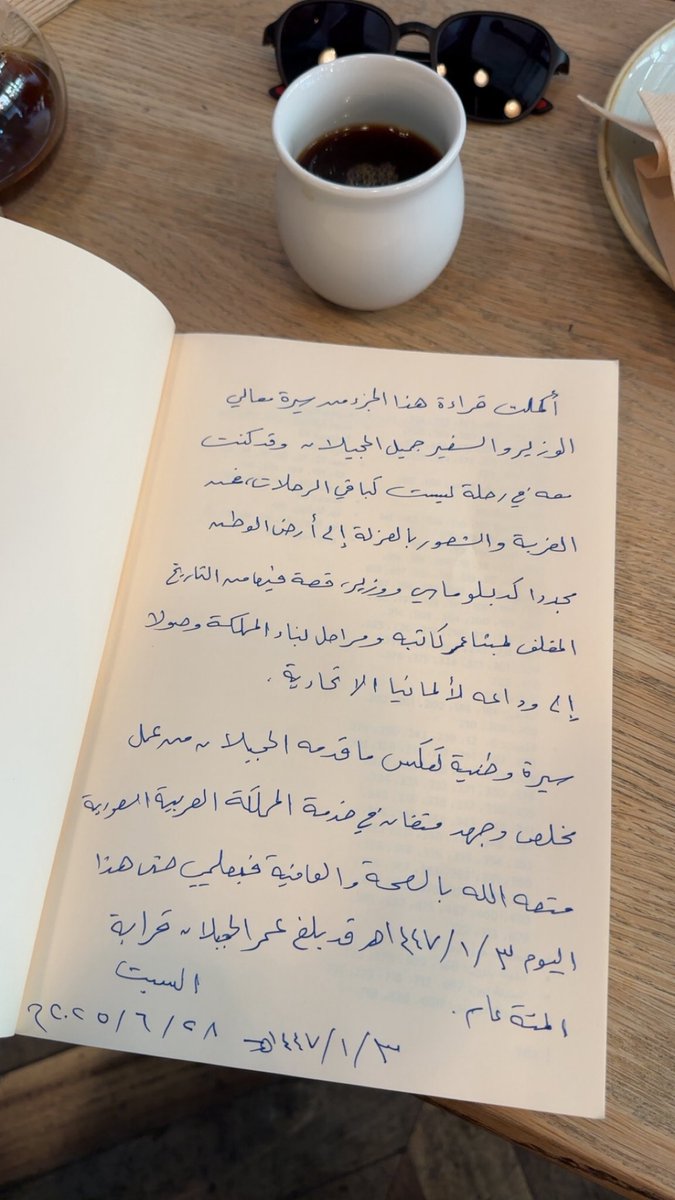 أكملت قراءة هذا الجزء من سيرة معالي
الوزير والسفير جميل الحجيلان وقد كنت
معه في رحلة ليست كباقي الرحلات، فمن
الغربة والشعور بالعزلة إلى أرض الوطن
مجددا كدبلوماسي ووزير، قصة فيها من التاريخ
المغلف بمشاعر كاتبه ومراحل لبناء المملكة وصولا
إلى وداعه لألمانيا الاتحادية .
سيرة وطنية تعكس ما قدمه الحجيلان من عمل
مخلص وجهد متفان في خدمة المملكة العربية السعودية
متعه الله بالصحة والعافية فبعلمي حتى هذا
اليوم ١٤٤٧/١/٣هـ قد بلغ عمر الحجيلان قرابة
المئة عام .
السبت
١٤٤٧/١/٣هـ ٢٠٢٥/٦/٢٨م